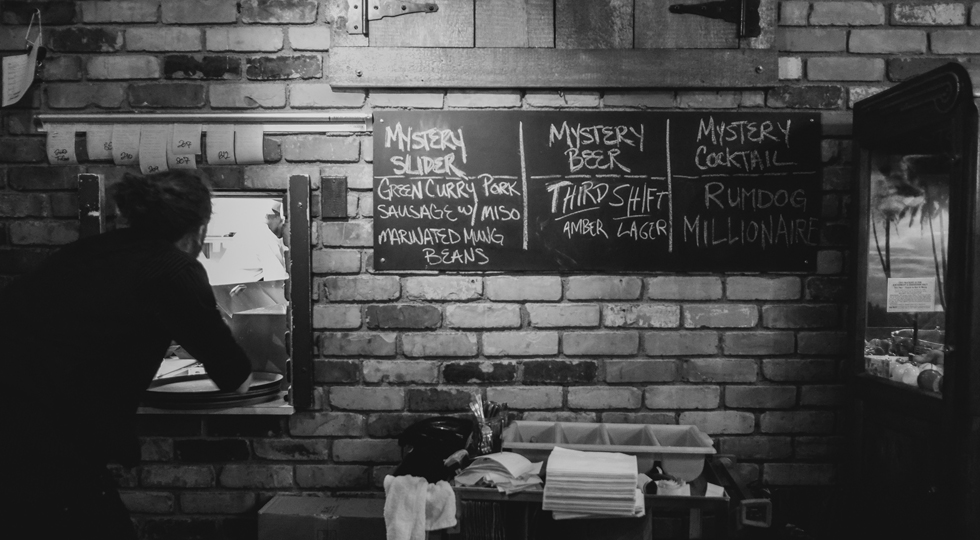 MYSTERY
SLIDER
GREEN CURRY PORK
SAUSAGE W/ MISO
MARINATED MUNG
BEANS
MYSTERY
BEER
THIRD SHIFT
AMBER LAGER
MYSTERY
COCKTAIL
RUMDOG
MILLIONAIRE